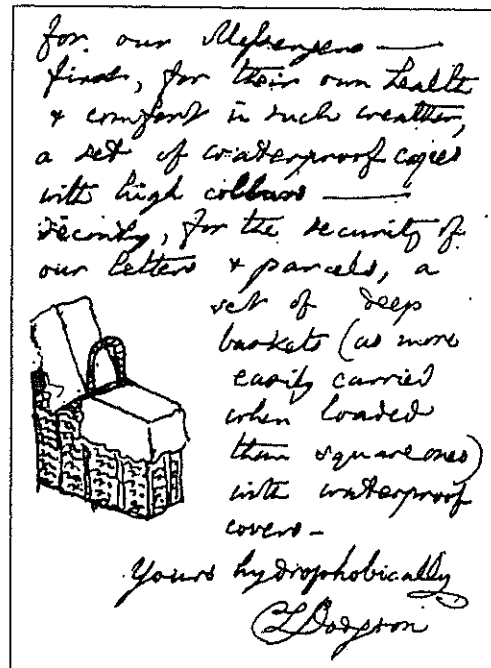 for our Messengers —
first, for their own health
& comfort in such weather,
a set of waterproof capes
with high collars —
secondly, for the security of
our letters & parcels, a
set of deep
baskets (as more
easily carried
when loaded
than square ones)
with waterproof
covers —
Yours hydrophobically
CLDodgson